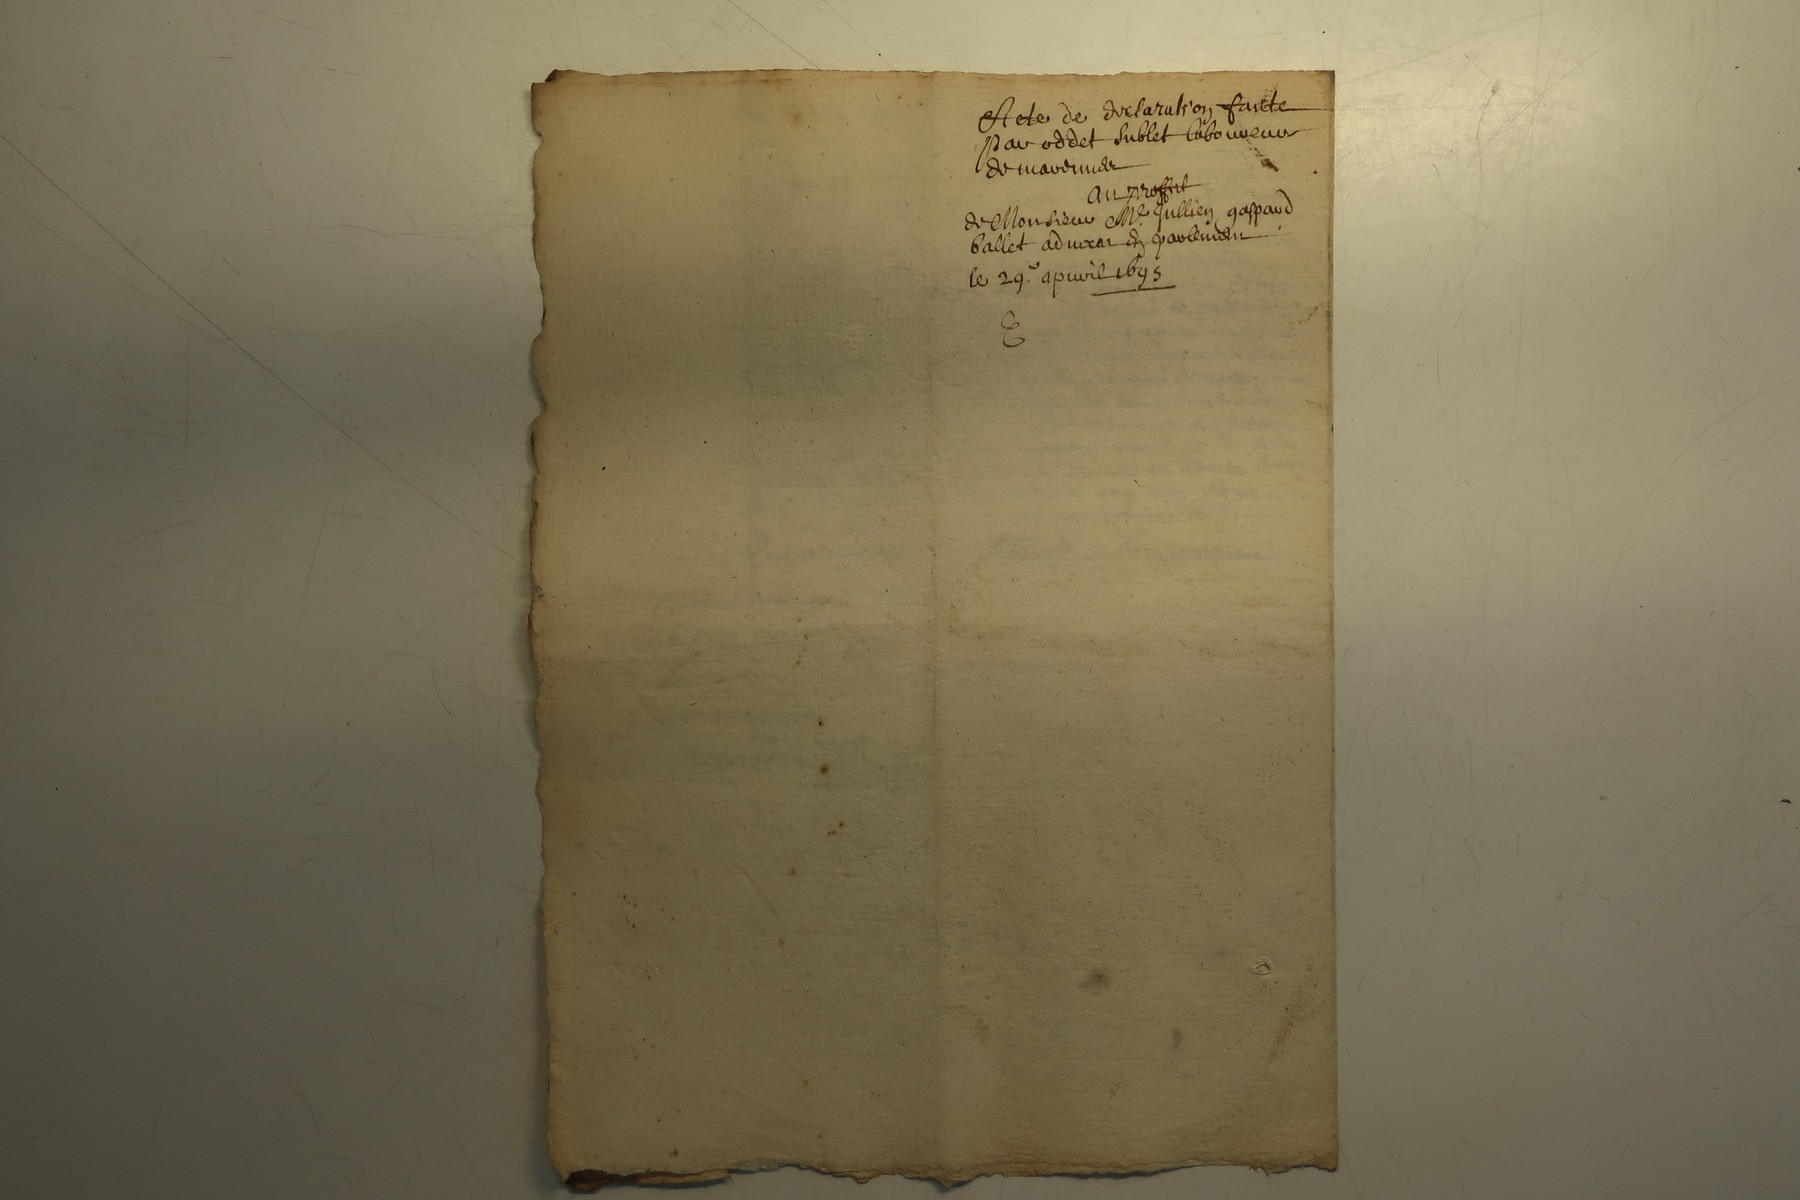 Acte de declaration faicte
Par oddet Sublet laboureur
de
Au proffit
de Monsieur Me Jullien gaspard
ballet advocat en parlement
le 29e apvril 1695
E